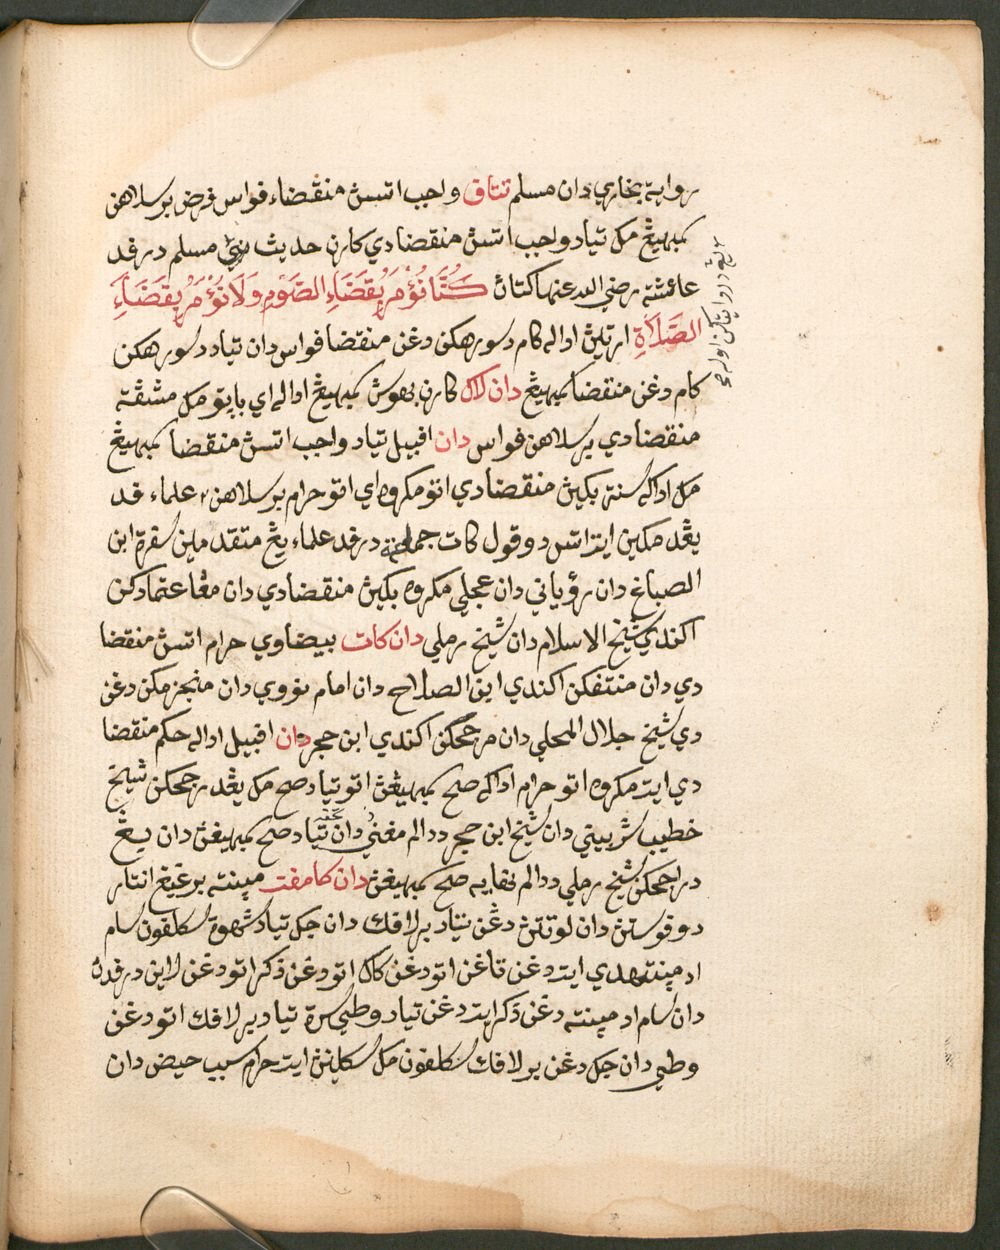 رواية بخاري دان مسلم تتاڤ واجب اتسڽ منقضاء ڤواس فرض برسلاهن
سمبهيڠ مک تياد واجب اتسڽ منقضادي کارن حديث مسلم درڤد
عائشة رضي الله عنها کتاڽ كُنَّا نُؤْمَرُ بِقَضَاءِ الصَّوْمِ وَلَا نُؤْمَرُ بِقَضَاءِ
الصَّلَاةِ ارتيڽ اداله کام دسورهکن دڠن منقضا ڤواس دان تياد دسورهکن
کام دڠن منقضا سمبهيڠ دان لاݢ کارن بهوسڽ سمبهيڠ اداله اي باپق مک مشقة
منقضادي برسلاهن ڤواس دان اڤبيل تياد واجب اتسڽ منقضا سمبهيڠ
مک اداکه سنة بݢيڽ منقضادي اتو مکروه اي اتو حرام برسلاهن٢ علماء ڤد
يڠدمکين ايت اتس دو قول کات جماعة درڤد علماء يڠ متقدمين سڤرة ابن
الصباغ دان رؤياني دان عجلي مکروه بݢيڽ منقضادي دان معاعتمادکن
اکندي شيخ الاسلام دان شيخ رملي دان کات بيضاوي حرام اتسڽ منقضا
دي دان منتفکن اکندي ابن الصلاح دان امام نووي دان منجزمکن دڠن
دي شيخ جلال المحلي دان مرجحکن اکندي ابن حجر دان اڤبيل اداله حکم منقضا
دي ايت مکروه اتو حرام اداکه صح سمبهيڠڽ اتو تياد صح مک يڠدرجحکن شيخ
خطيب شربيني دان شيخ ابن حجر ددالم مغني دان تحفة تياد صح سمبهيڠڽ دان يڠ
درجحکن شيخ رملي ددالم نهايه صح سمبهيڠڽ دان کامڤت مپنته برڠيڠ انتار
دوڤوستڽ دان لوتتڽ دڠن تياد برلاڤک دان جک تياد شهوة سکلڤون سام
اد مپنتهدي ايت دڠن تاڠن اتو دڠن کاک اتو دڠن ذکر اتو دڠن لاين درڤدڽ
دان سام اد مپنته دڠن ذکر ايت دڠن تياد وطئ سرة تياد برلاڤک اتو دڠن
وطئ دان جک دڠن برلاڤک سکلڤون مک سکلينڽ ايت حرام سبب حيض دان